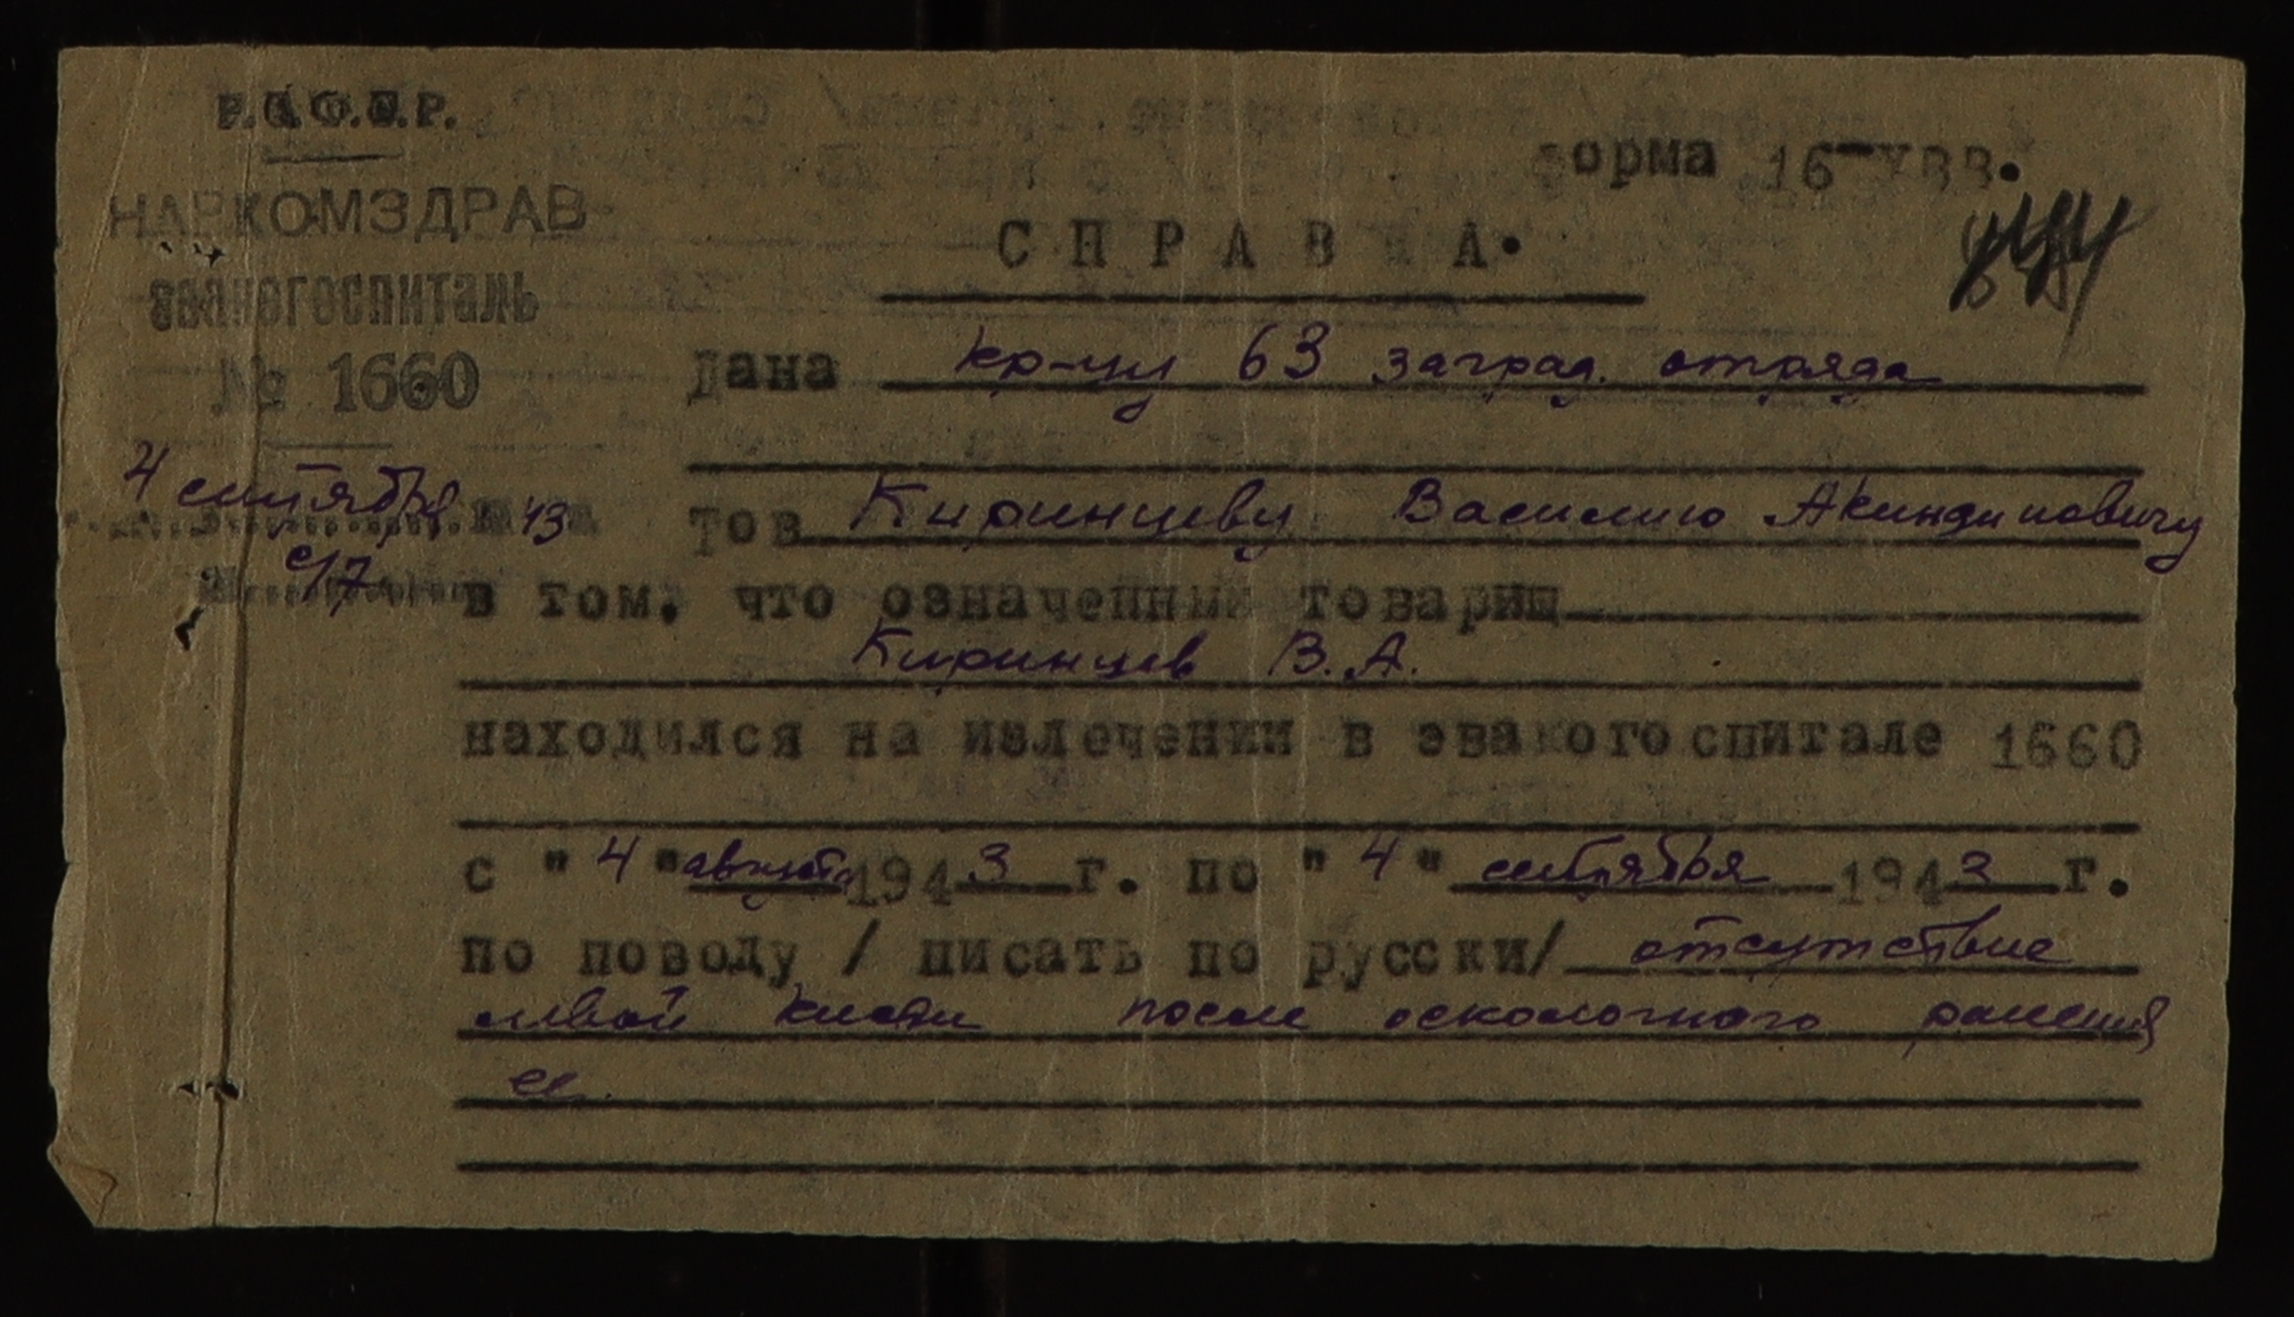 Р.С.Ф.С.Р.
форма 16-УВВ.
НАРКОМЗДРАВ
СПРАВКА.
эвакогоспиталь
№ 1660
Дана кр-цу 63 заград. отряда
4 сентября 43
Тов Киринцеву Василию Акиндиновичу
в том, что означенный товарищ
Киринцев В.А.
находился на излечении в эвакогоспитале 1660
с "4" августа 1943 г. по "4" сентября 1943 г.
по поводу / писать по русски/ отсутствие
левой кисти после осколочного ранения
ее.